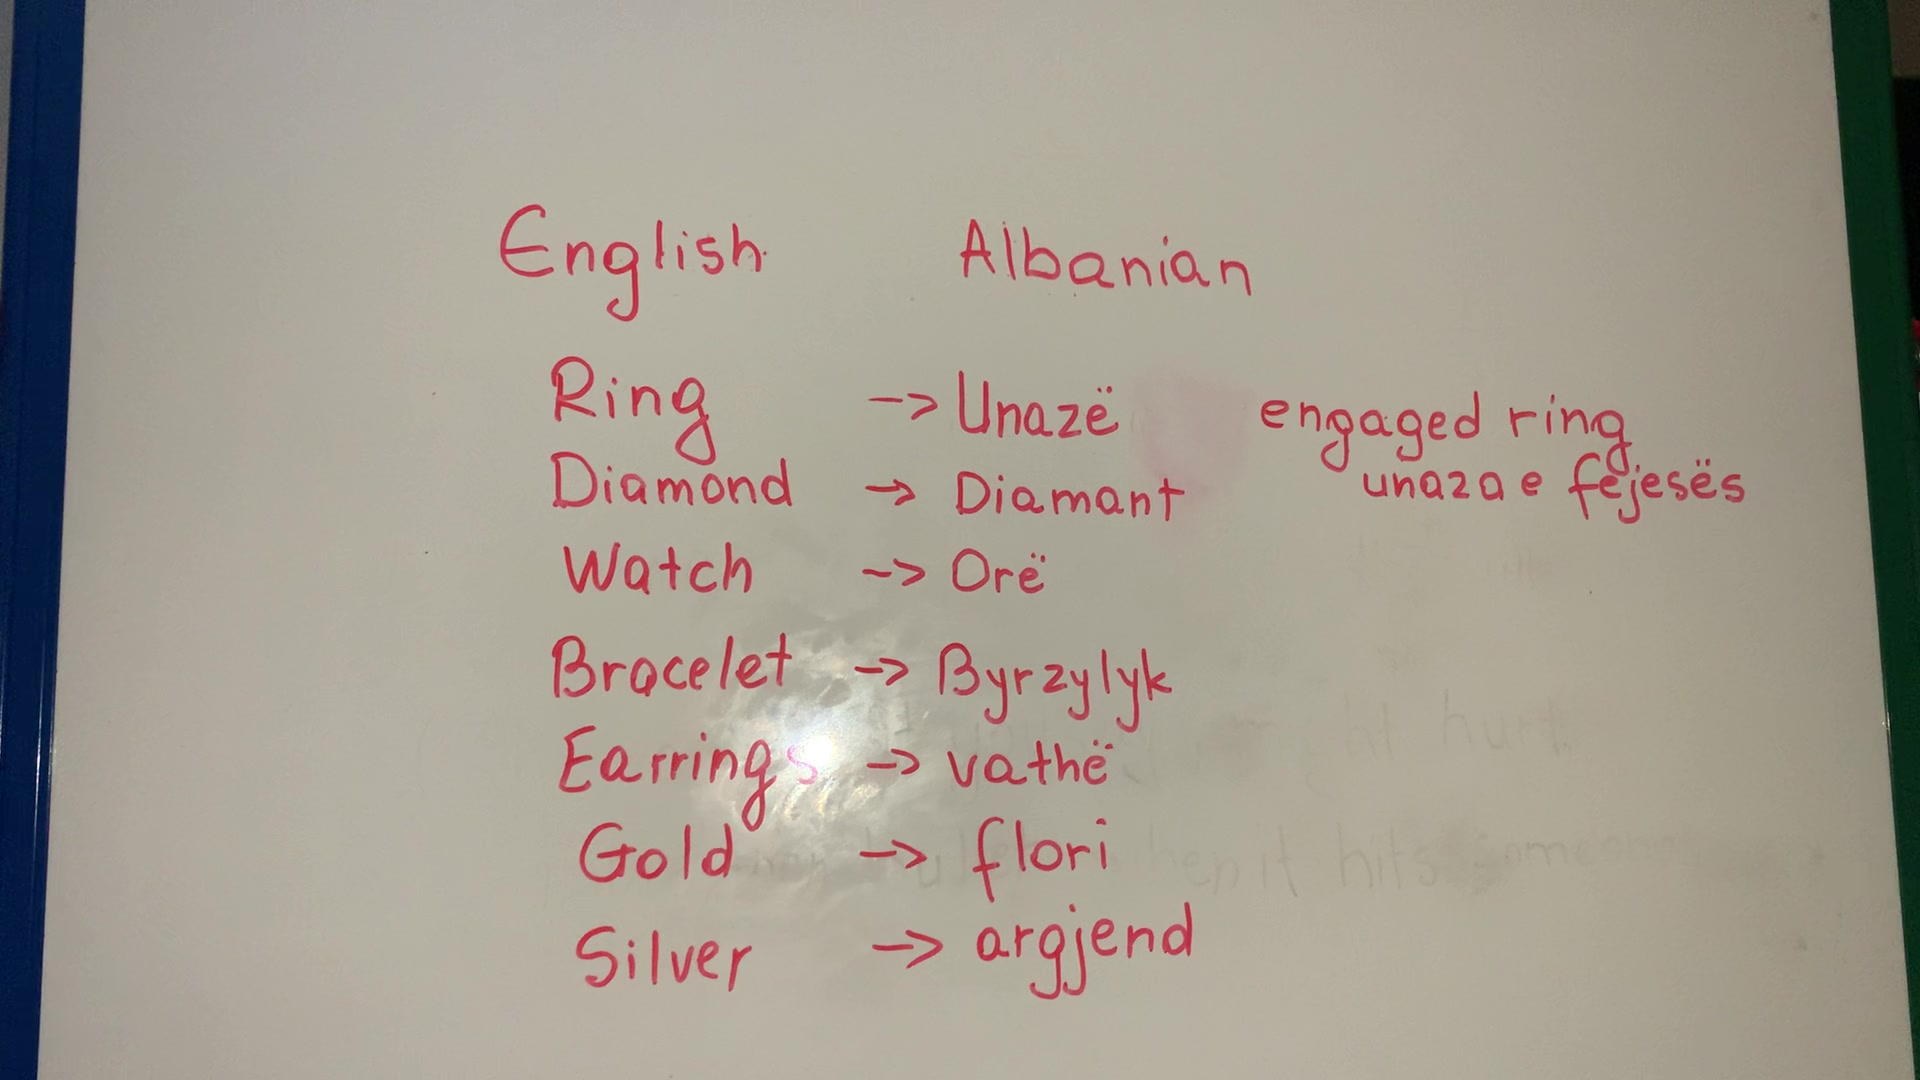 English Albanian
Ring -> Unazë
engaged ring
unaza e fejesës
Diamond -> Diamant
Watch -> Orë
Bracelet -> Byrzylyk
Earrings -> vathë
Gold -> flori
Silver -> argjend
hurt
hits